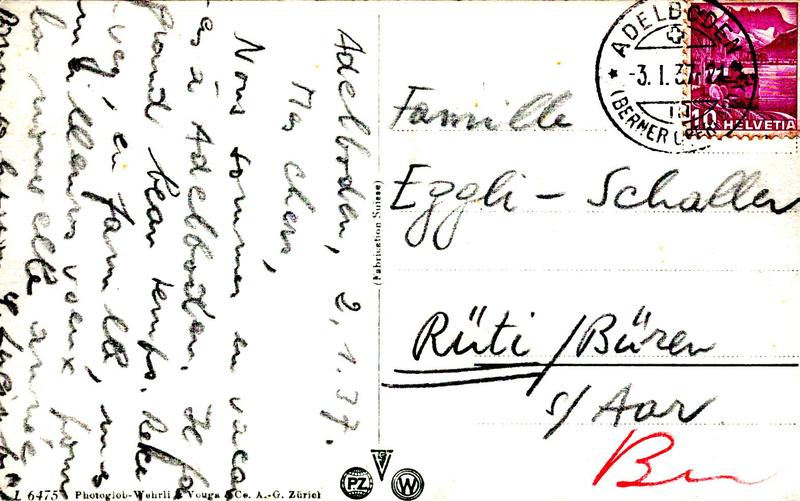 Adelboden, 2.1.37.
Mes chers,
Nous sommes en vacan
ces à Adelboden. Il fa
grand beau temps.
en famille, nos
meilleurs voeux pour
la nouvelle année
Famille
Eggli - Schaller
Rüti / Büren
s/ Aar
Bn
ADELBODEN
-3.I.37.
(BERNER OBER
10 HELVETIA
(Fabrication Suisse)
L 6475 Photoglob-Wehrli & Vouga & Co. A.-G. Zürich
PZ
V
W